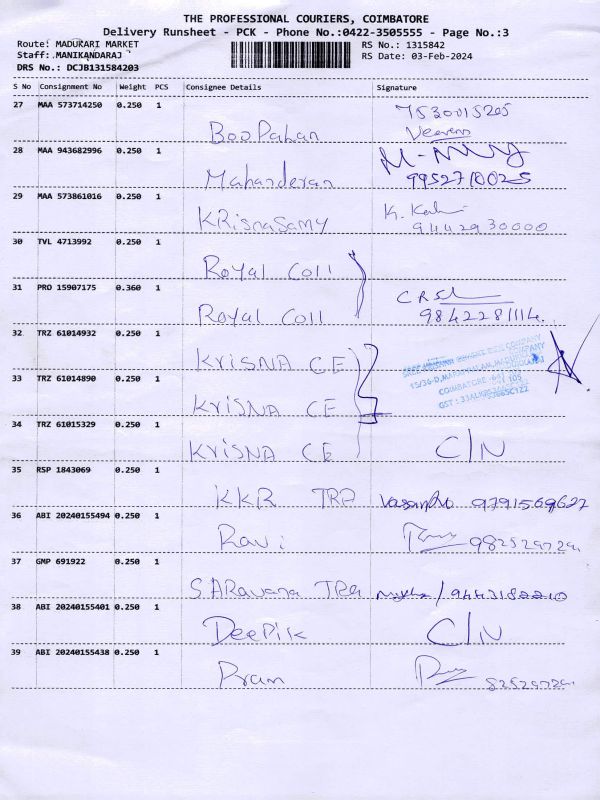 THE PROFESSIONAL COURIERS, COIMBATORE
Delivery Runsheet - PCK - Phone No.:0422-3505555 - Page No.:3
Route: MADUKARI MARKET RS No.: 1315842
Staff: MANIKANDARAJ RS Date: 03-Feb-2024
DRS No.: DCJB131584203
S No Consignment No Weight PCS Consignee Details Signature
27 MAA 573714250 0.250 1
BooPahan 7530015205
28 MAA 943682996 0.250 1
Mahanderan 9952710025
29 MAA 573861016 0.250 1
KRisnasamy 9442930000
30 TVL 4713992 0.250 1
Royal Coll
31 PRO 15907175 0.360 1
Royal Coll 9842281114.
32 TRZ 61014932 0.250 1
Krisna CE
33 TRZ 61014890 0.250 1
Krisna CE
COIMBATORE
34 TRZ 61015329 0.250 1
Krisna CE C/N
35 RSP 1843069 0.250 1
KKR TRA 9791569622
36 ABI 20240155494 0.250 1
Ravi
37 GMP 691922 0.250 1
SARavana TRA
38 ABI 20240155401 0.250 1
Deepik C/N
39 ABI 20240155438 0.250 1
Pram